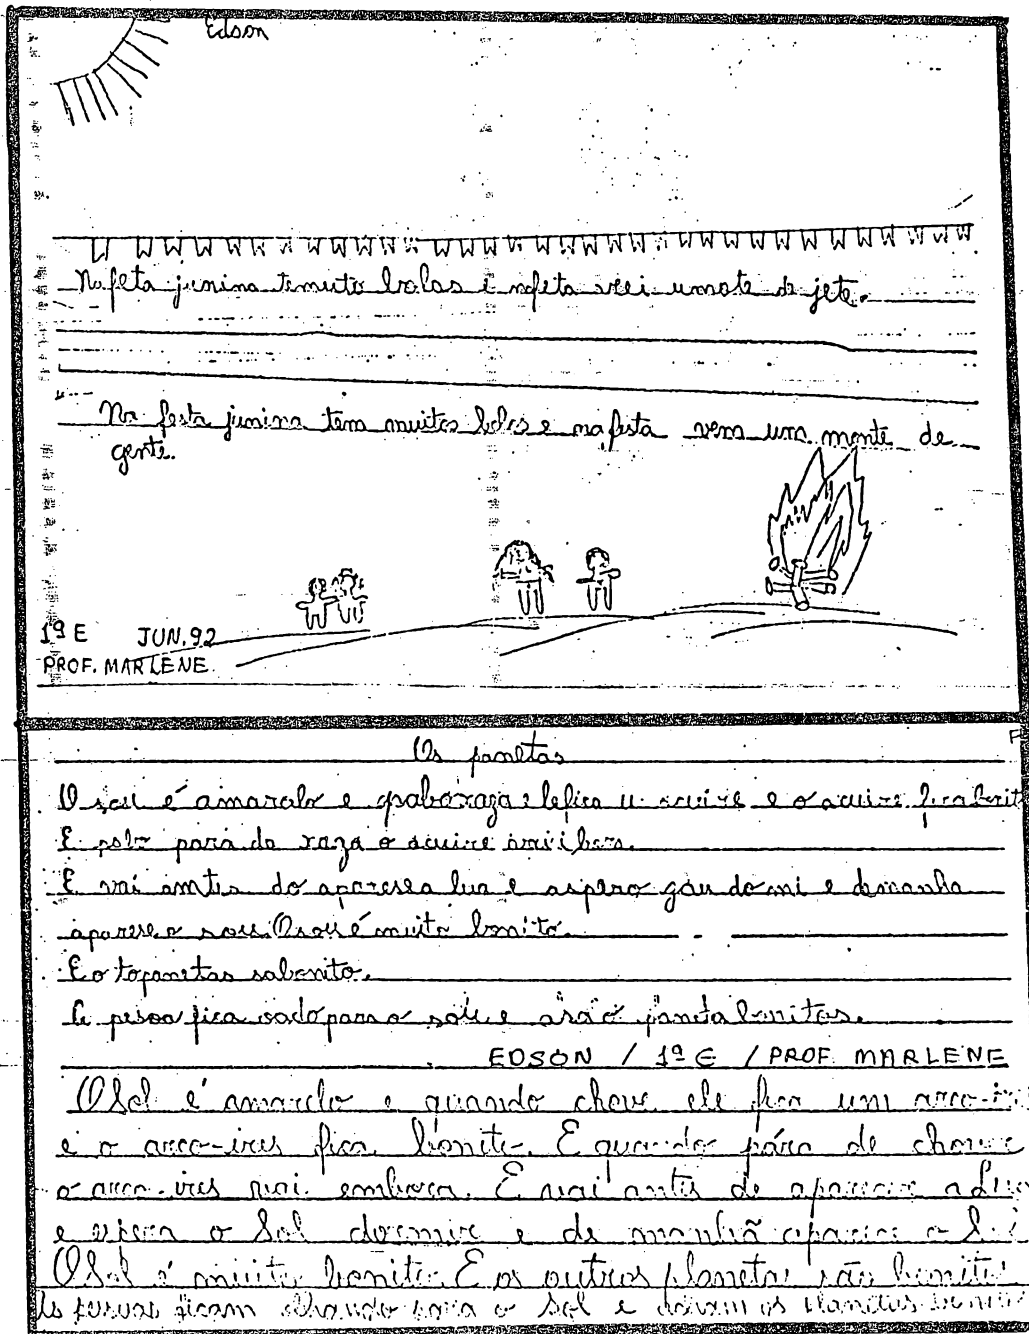 Edson
Na feta junina temuito bolos i nafeta vei umote de jete.
Na festa junina tem muitos bolos e na festa vem um monte de
gente.
1º E JUN. 92
PROF. MARLENE
Os panetas
O sou é amaralo e
E para da raza o
E vai antis do aparese a lua e demanha
aparese o sou. O sou é muito bonito.
E o topanetas sabonito.
A pesoa fica para o sou e paneta bonitos.
EDSON / 1º E / PROF. MARLENE
O Sol é amarelo e quando chove ele fica um
e o arco-iris fica bonito. E quando pára de chover
o arco-iris vai embora. E vai antes de aparecer a Lua
e espera o Sol dormir e de manhã aparece o
O Sol é muito bonito. E os outros planetas são bonitos
As pessoas ficam olhando para o Sol e os planetas